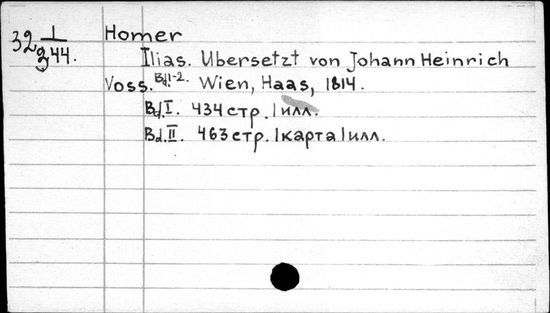 32 1/244.
Homer
Ilias. Ubersetzt von Johann Heinrich
Voss. Bd.1-2. Wien, Haas, 1814.
Bd.I. 434 стр. 1 илл.
Bd.II. 463 стр. 1 карта 1 илл.